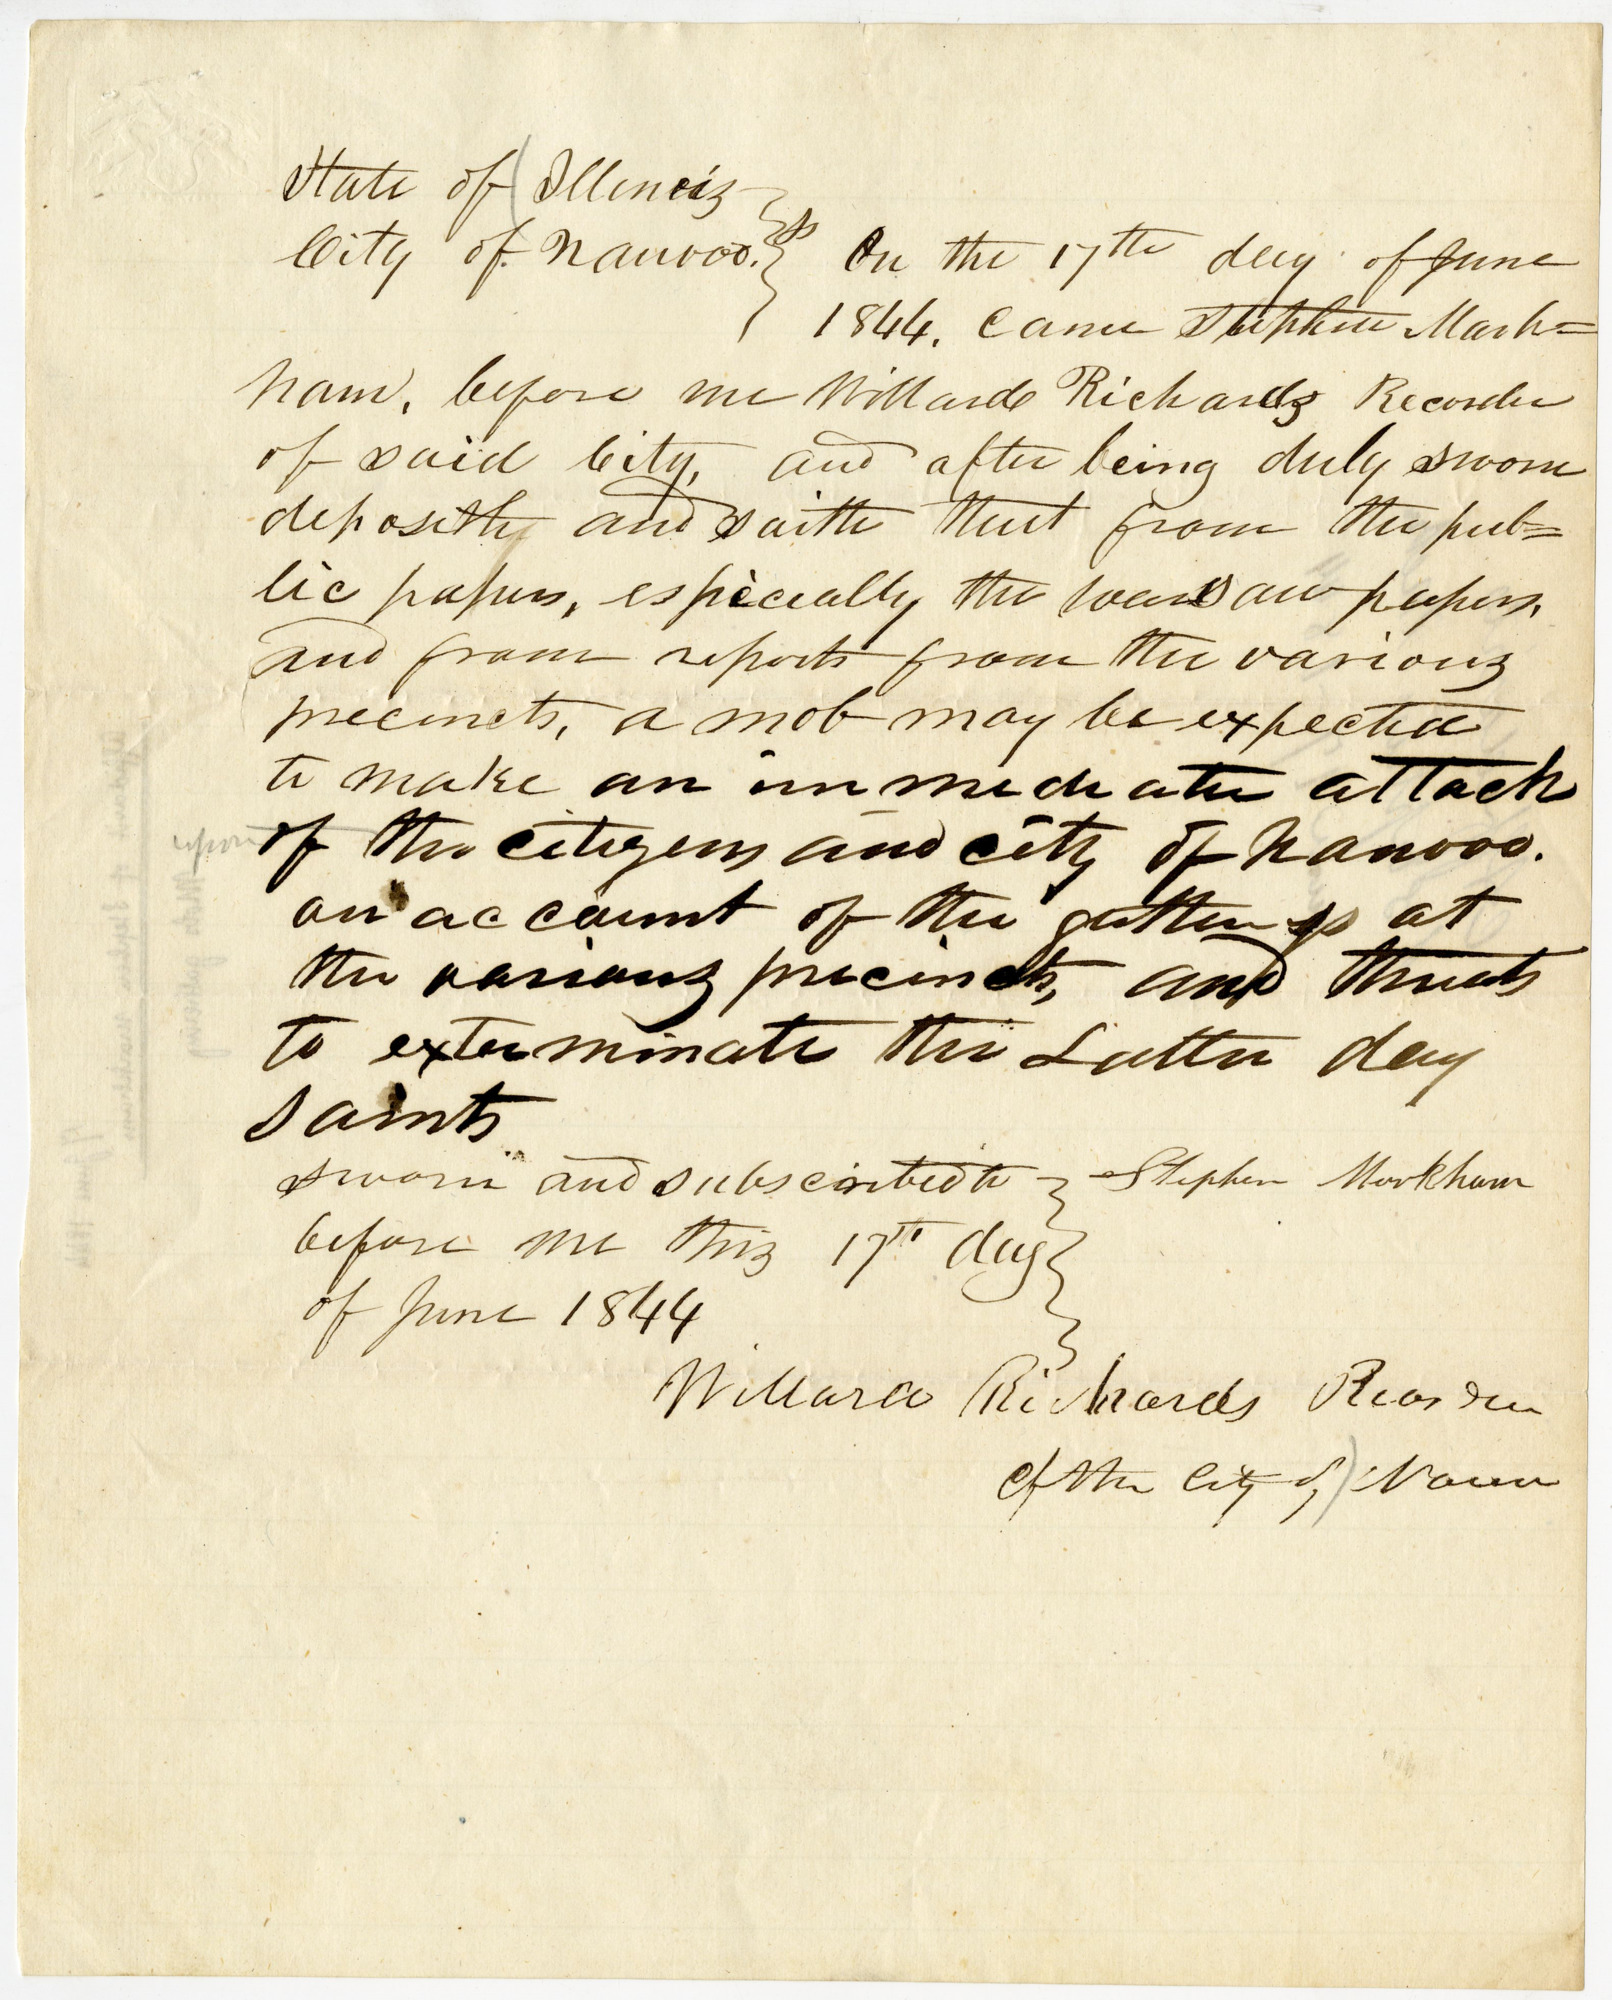 State of Illinois
City of Nauvoo. } ss On the 17th day of June
1844, came Stephen Mark=
ham, before me Willard Richards Recorder
of said City, and after being duly sworn
deposeth and saith that from the pub=
lic papers, especially the warsaw papers,
and from reports from the various
precincts, a mob may be expected
to make an immediate attack
upon of the citizens and city of Nauvoo.
on account of the at
the various precincts, and threats
to exterminate the Latter day
saints
sworn and subscribed to } Stephen Markham
before me this 17th day
of June 1844
Willard Richards Recorder
of the City of Nauvoo